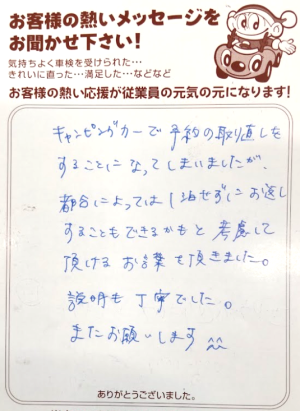 お客様の熱いメッセージを
お聞かせ下さい！
気持ちよく車検を受けられた…
きれいに直った…満足した…などなど
お客様の熱い応援が従業員の元気の元になります！
キャンピングカーで予約の取り直しを
することになってしまいましたが、
都合によっては1泊せずにお返し
することもできるかもと考慮して
頂けるお言葉も頂きました。
説明も丁寧でした。
またお願いします
ありがとうございました。